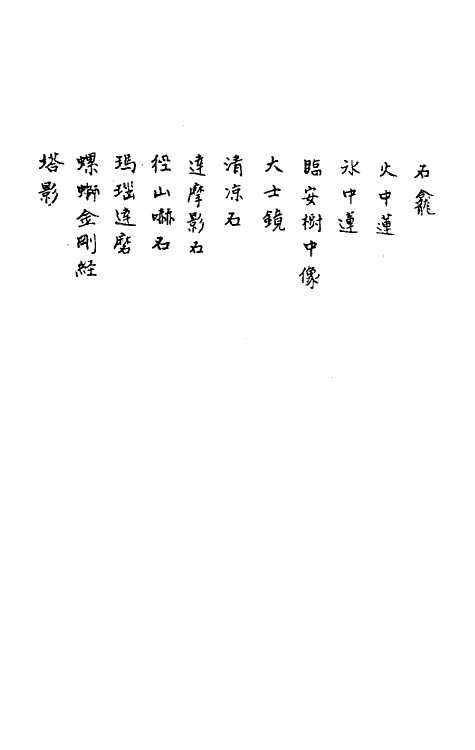 石龕
火中蓮
氷中蓮
臨安樹中像
大士鏡
清凉石
達摩影石
径山嚇石
瑪瑙達磨
螺螄金剛経
塔影